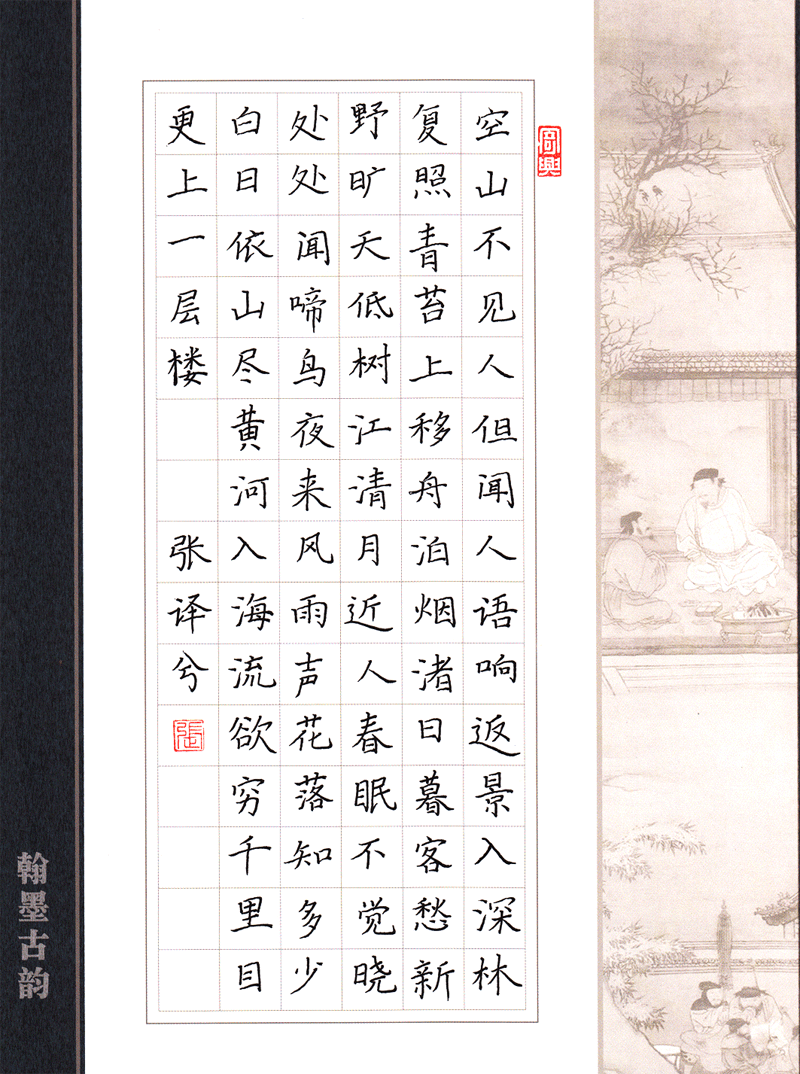 空山不见人但闻人语响返景入深林
复照青苔上移舟泊烟渚日暮客愁新
野旷天低树江清月近人春眠不觉晓
处处闻啼鸟夜来风雨声花落知多少
白日依山尽黄河入海流欲穷千里目
更上一层楼
张译兮
張
翰墨古韵